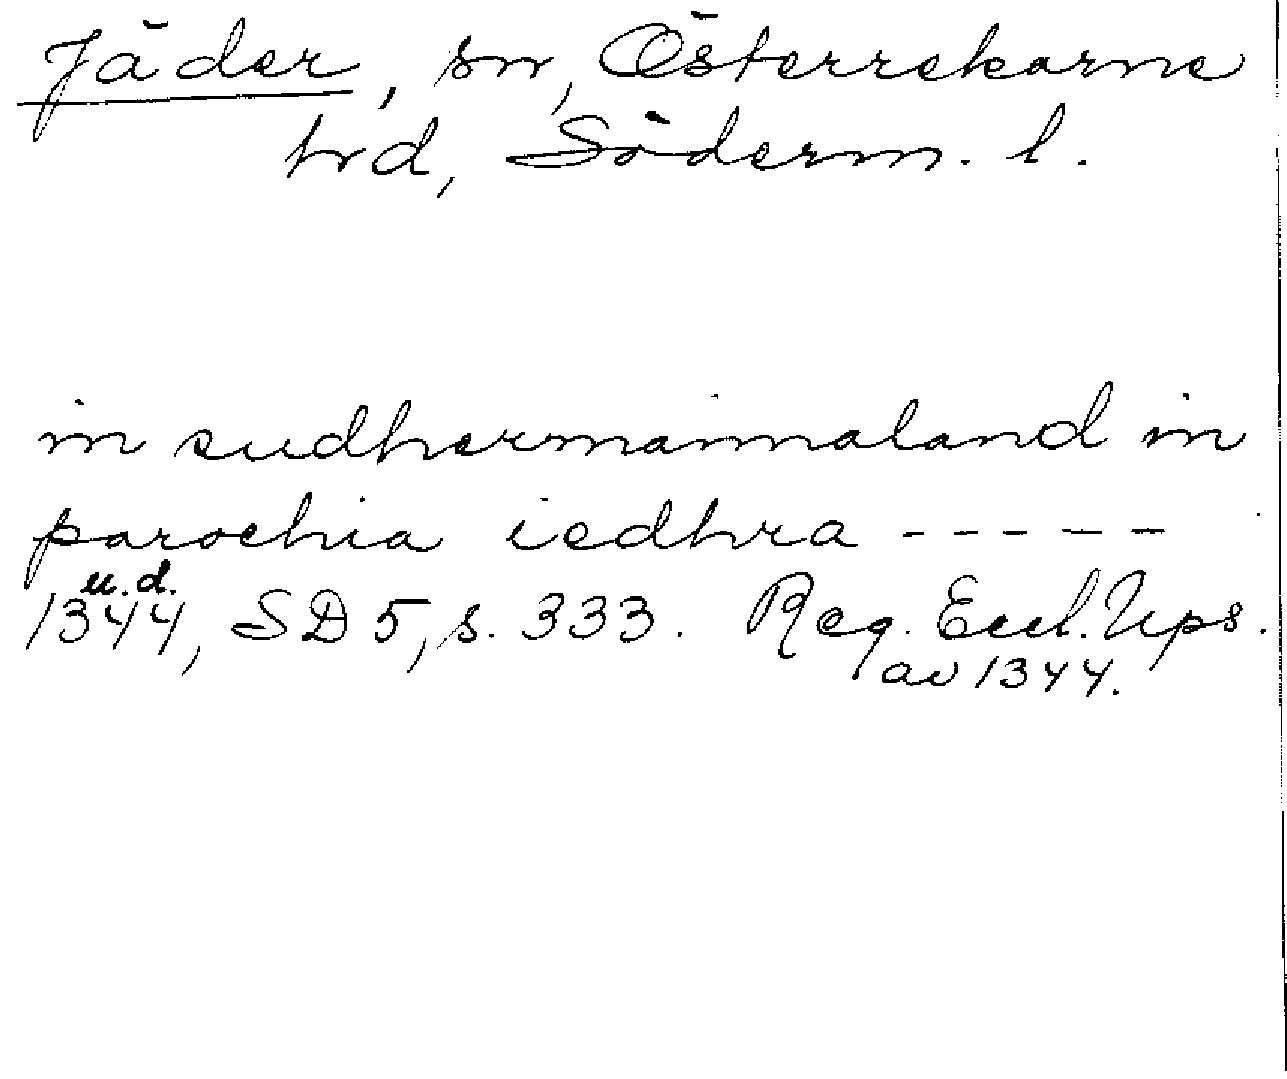 Jäder, sn, Österrekarne
hrd, Söderm. l.
in sudhermannaland in
parochia iedhra -----
u.d.
1344, SD 5, s. 333. Reg. Eccl. Ups.
av 1344.